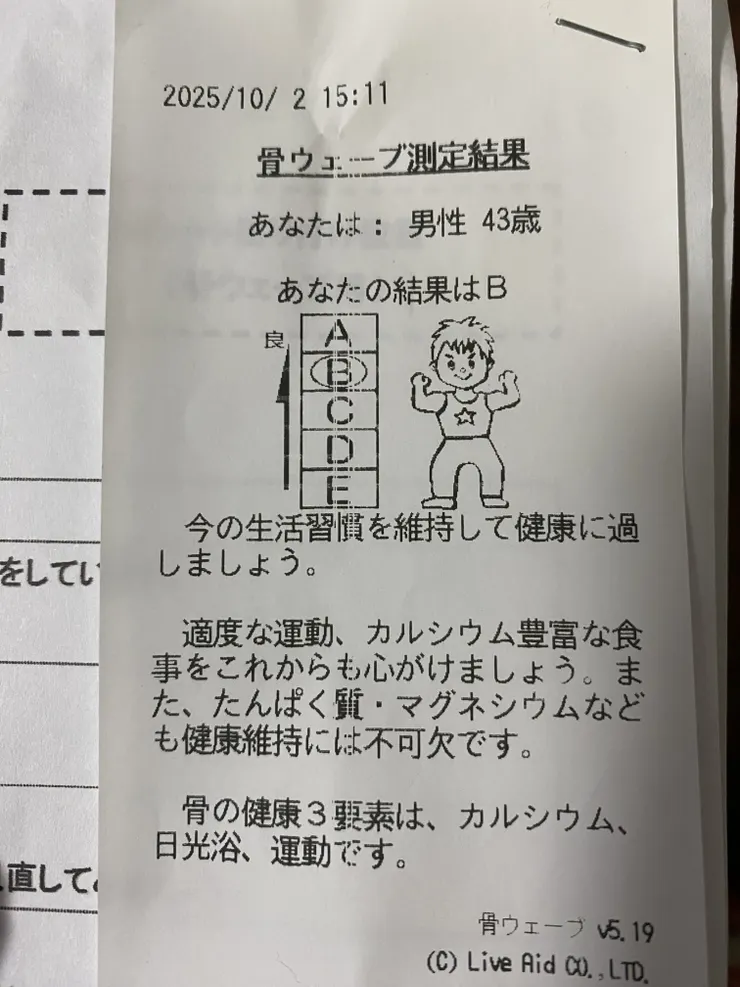 2025/10/ 2 15:11
骨ウェーブ測定結果
あなたは： 男性 43歳
あなたの結果はB
良
A
B
C
D
E
今の生活習慣を維持して健康に過
しましょう。
適度な運動、カルシウム豊富な食
事をこれからも心がけましょう。ま
た、たんぱく質・マグネシウムなど
も健康維持には不可欠です。
骨の健康３要素は、カルシウム、
日光浴、運動です。
骨ウェーブ v5.19
(C) Live Aid CO.,LTD.
をしてい
直して